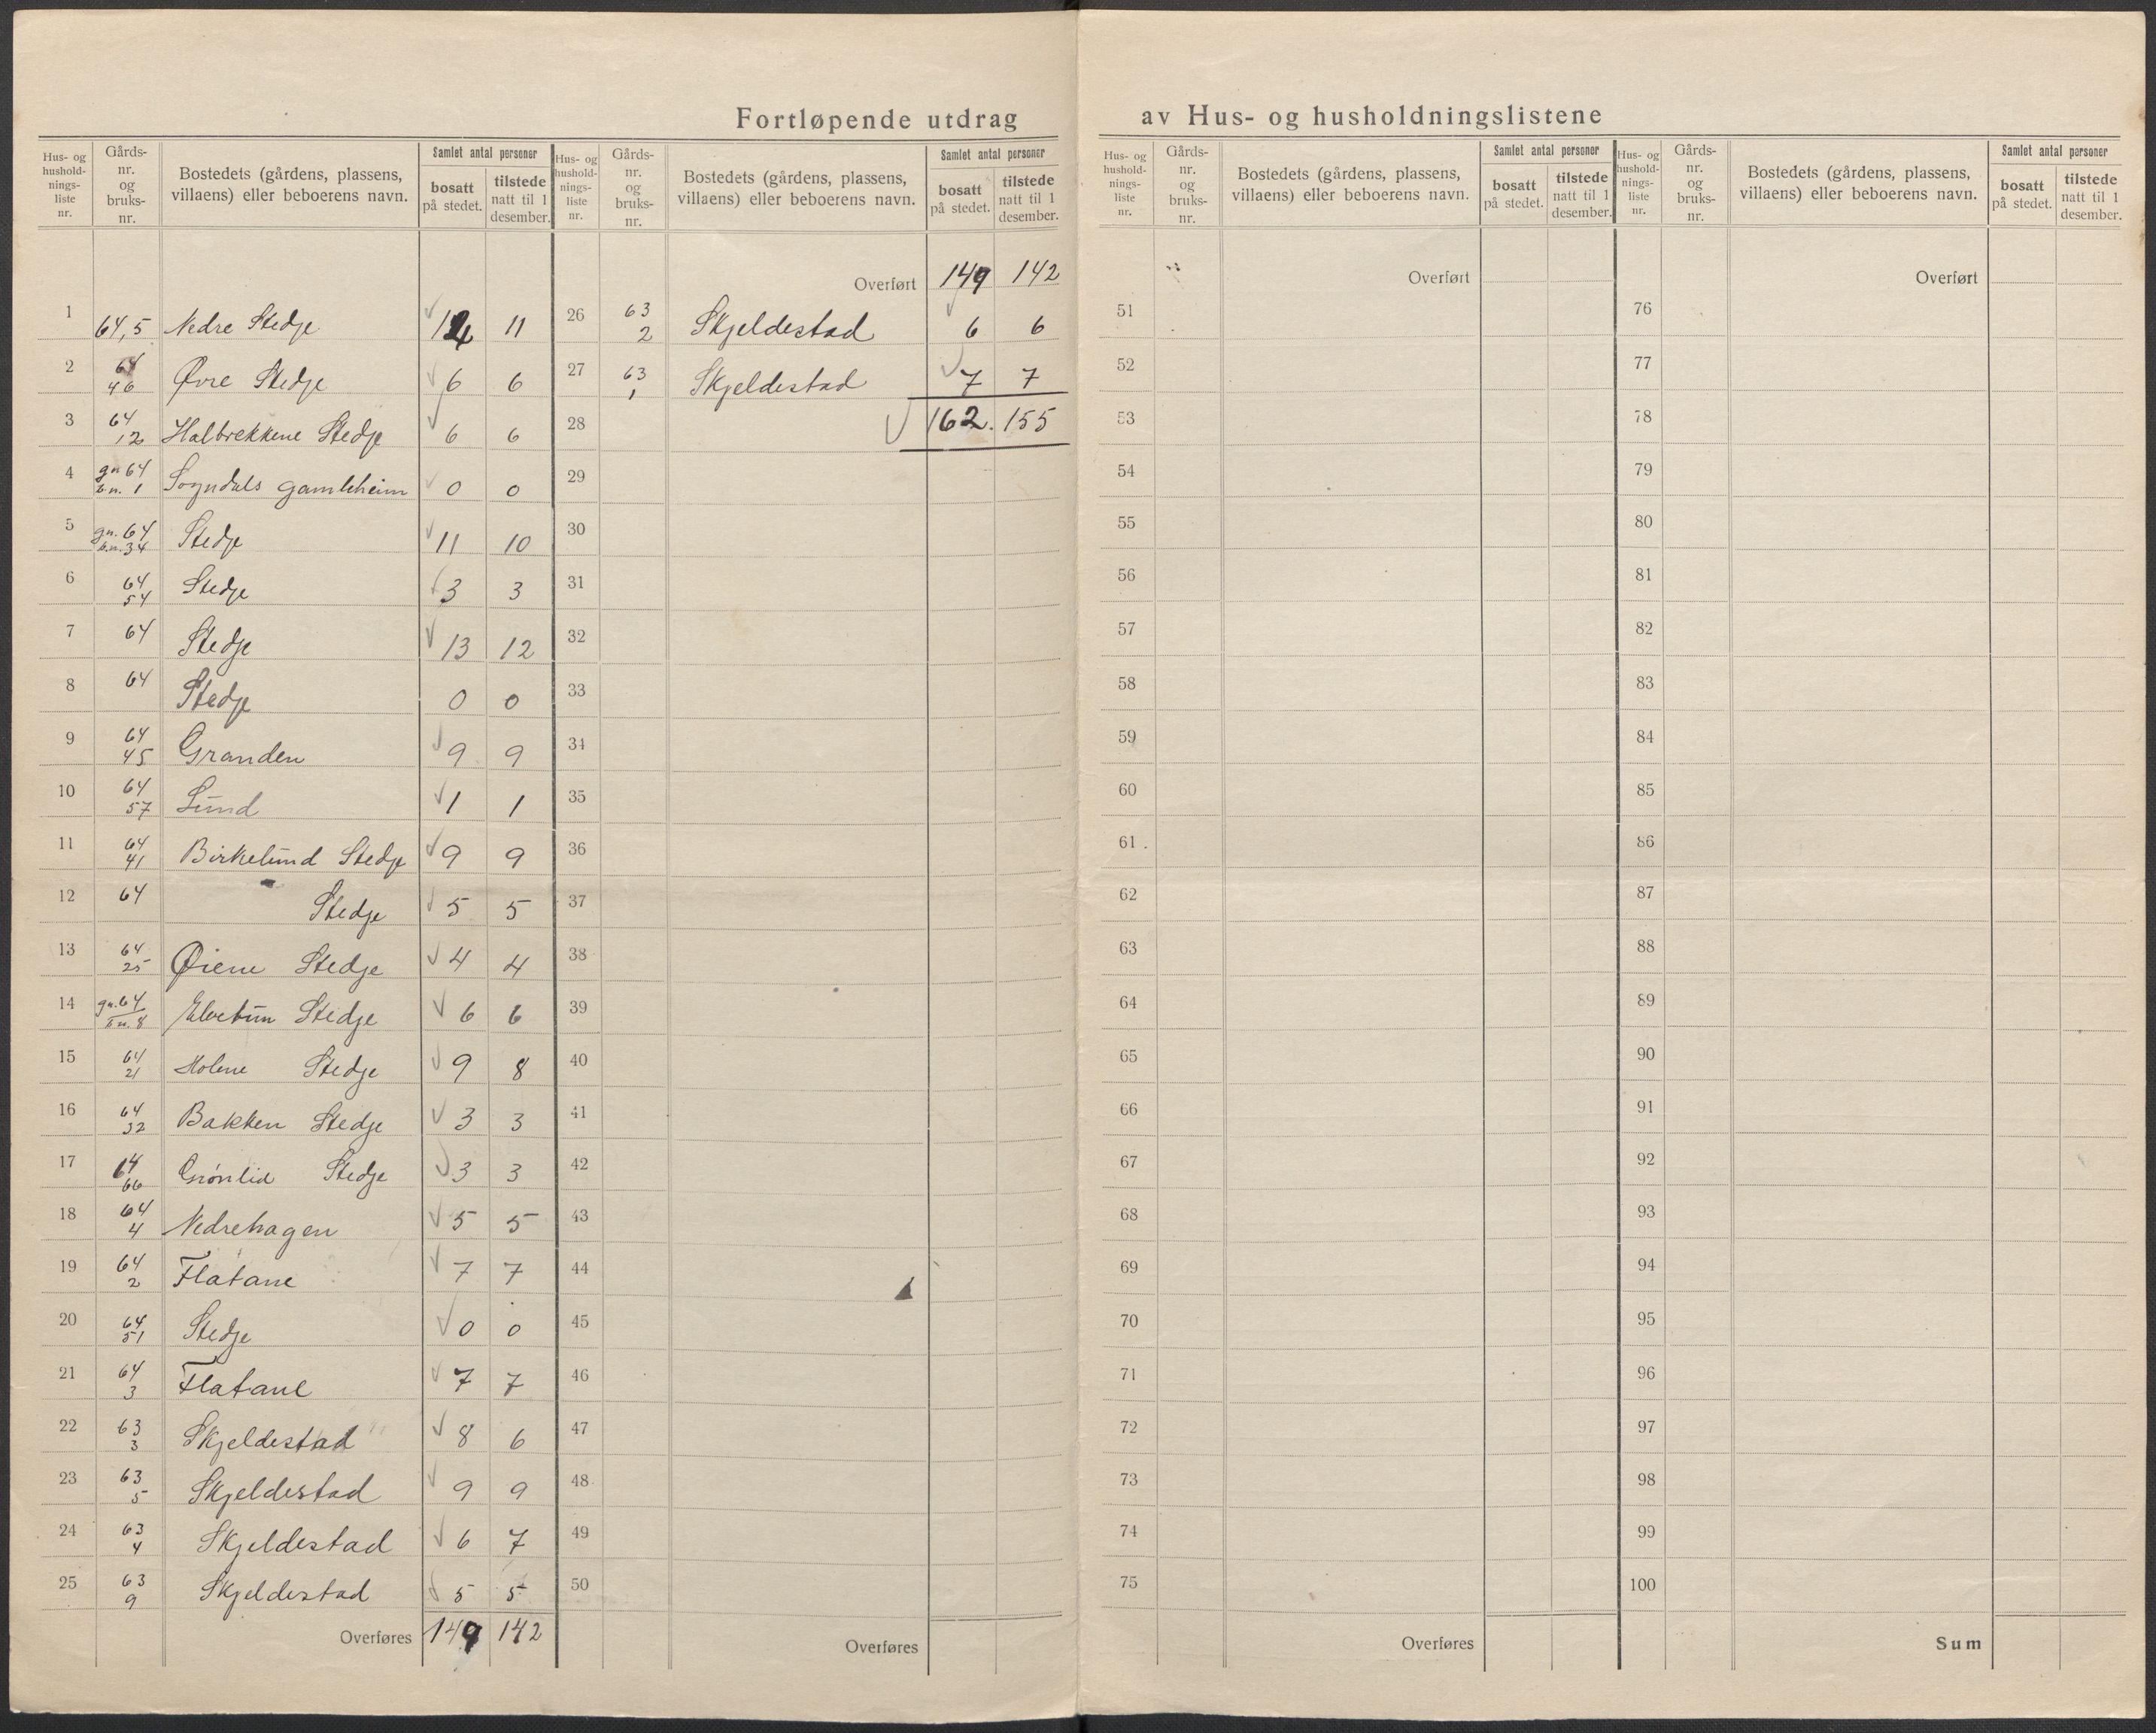 Fortløpende utdrag av Hus- og husholdningslistene
Hus- og husholdningsliste nr. Gårdsnr. og bruksnr. Bostedets (gårdens, plassens, villaens) eller beboerens navn. Samlet antal personer bosatt på stedet. tilstede natt til 1 desember.
1 64,5 Nedre Stedje 11
2 64 46 Øvre Stedje 6 6
3 64 12 Halbrekkene Stedje 6 6
4 gn 64 b.n. 1 Sogndals gamleheim 0 0
5 gn. 64 b.n. 34 Stedje 11 10
6 64 54 Stedje 3 3
7 64 Stedje 13 12
8 64 Stedje 0 0
9 64 45 Granden 9 9
10 64 57 Lund 1 1
11 64 41 Birkelund Stedje 9 9
12 64 Stedje 5 5
13 64 25 Øiene Stedje 4 4
14 gn. 64 b.n. 8 Elvetun Stedje 6 6
15 64 21 Molene Stedje 9 8
16 64 32 Bakken Stedje 3 3
17 64 66 Grønlid Stedje 3 3
18 64 4 Nedrehagen 5 5
19 64 2 Flatane 7 7
20 64 51 Stedje 0 0
21 64 3 Flatane 7 7
22 63 3 Skjeldestad 8 6
23 63 5 Skjeldestad 9 9
24 63 4 Skjeldestad 6 7
25 63 9 Skjeldestad 5 5
Overføres 149 142
Hus- og husholdningsliste nr. Gårdsnr. og bruksnr. Bostedets (gårdens, plassens, villaens) eller beboerens navn. Samlet antal personer bosatt på stedet. tilstede natt til 1 desember.
Overført 149 142
26 63 2 Skjeldestad 6 6
27 63 1 Skjeldestad 7 7
28 162. 155
29
30
31
32
33
34
35
36
37
38
39
40
41
42
43
44
45
46
47
48
49
50
Overføres
Hus- og husholdningsliste nr. Gårdsnr. og bruksnr. Bostedets (gårdens, plassens, villaens) eller beboerens navn. Samlet antal personer bosatt på stedet. tilstede natt til 1 desember.
Overført
51
52
53
54
55
56
57
58
59
60
61
62
63
64
65
66
67
68
69
70
71
72
73
74
75
Overføres
Hus- og husholdningsliste nr. Gårdsnr. og bruksnr. Bostedets (gårdens, plassens, villaens) eller beboerens navn. Samlet antal personer bosatt på stedet. tilstede natt til 1 desember.
Overført
76
77
78
79
80
81
82
83
84
85
86
87
88
89
90
91
92
93
94
95
96
97
98
99
100
Sum